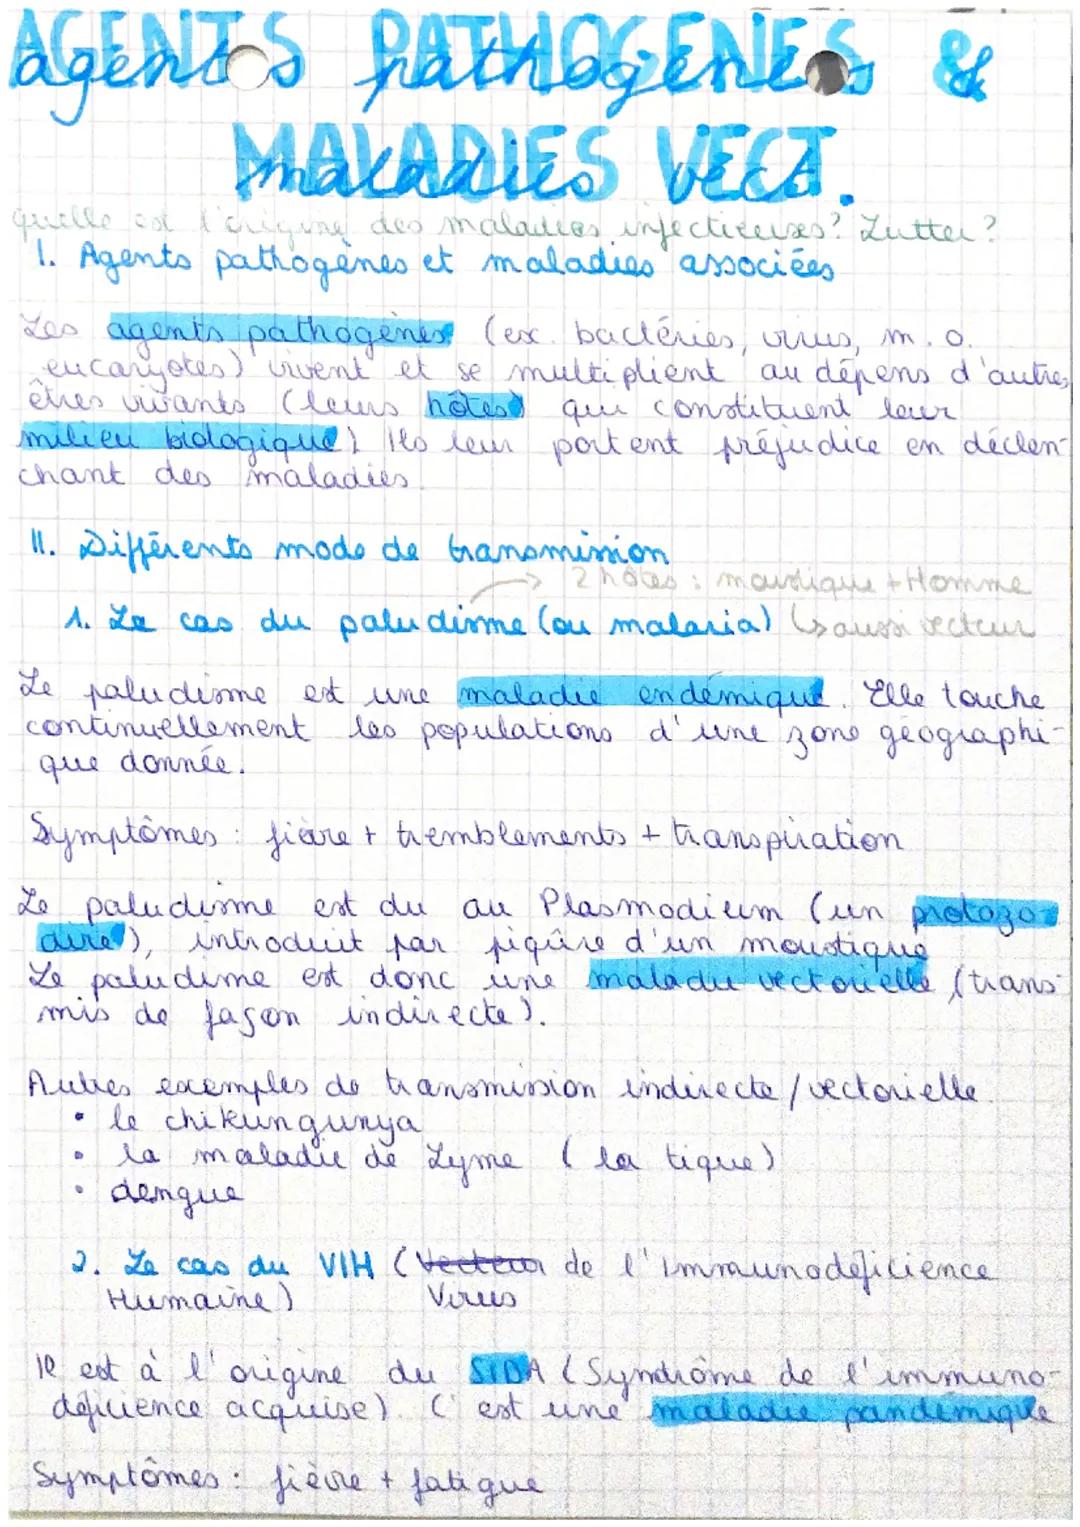 AGENTS PATHOGENES &
agents pathogènes &
MALADIES VECT.
maladies vect.
quelle est l'origine des maladies infectieuses? Lutter?
I. Agents pathogènes et maladies associées
Les agents pathogènes (ex. bactéries, virus, m.o.
eucaryotes) vivent et se multiplient au dépens d'autres
êtres vivants (leurs hôtes) qui constituent leur
milieu biologique). Ils leur portent préjudice en déclen-
chant des maladies.
II. Différents mode de transmission
→ 2 hôtes : moustique + Homme
1. Le cas du paludisme (ou malaria) ↳ aussi vecteur
Le paludisme est une maladie endémique. Elle touche
continuellement les populations d'une zone géographi-
que donnée.
Symptômes : fièvre + tremblements + transpiration
Le paludisme est du au Plasmodium (un protozo-
aire), introduit par piqûre d'un moustique
Le paludime est donc une maladie vectorielle (trans-
mis de façon indirecte).
Autres exemples de transmission indirecte/vectorielle.
• le chikungunya
• la maladie de Lyme (la tique)
• dengue
2. Le cas du VIH (Vecteur de l'immunodéficience
Humaine) Virus
Il est à l'origine du SIDA (Syndrôme de l'immuno-
déficience acquise). C'est une maladie pandémique
Symptômes : fièvre + fatigue